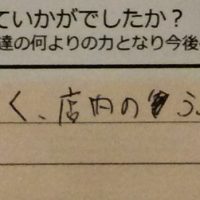 ていかがでしたか？
達の何よりの力となり今後
く、店内の